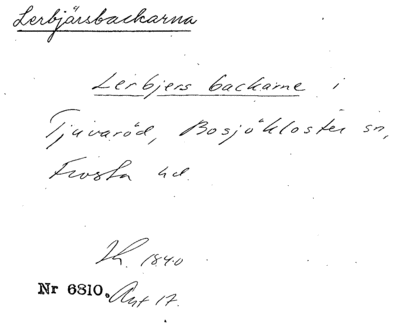 Lerbjärsbackarna
Lerbjers backarne i
Tjuvaröd, Bosjökloster sn,
Frosta hd.
1840
Nr 6810. Ant 17.